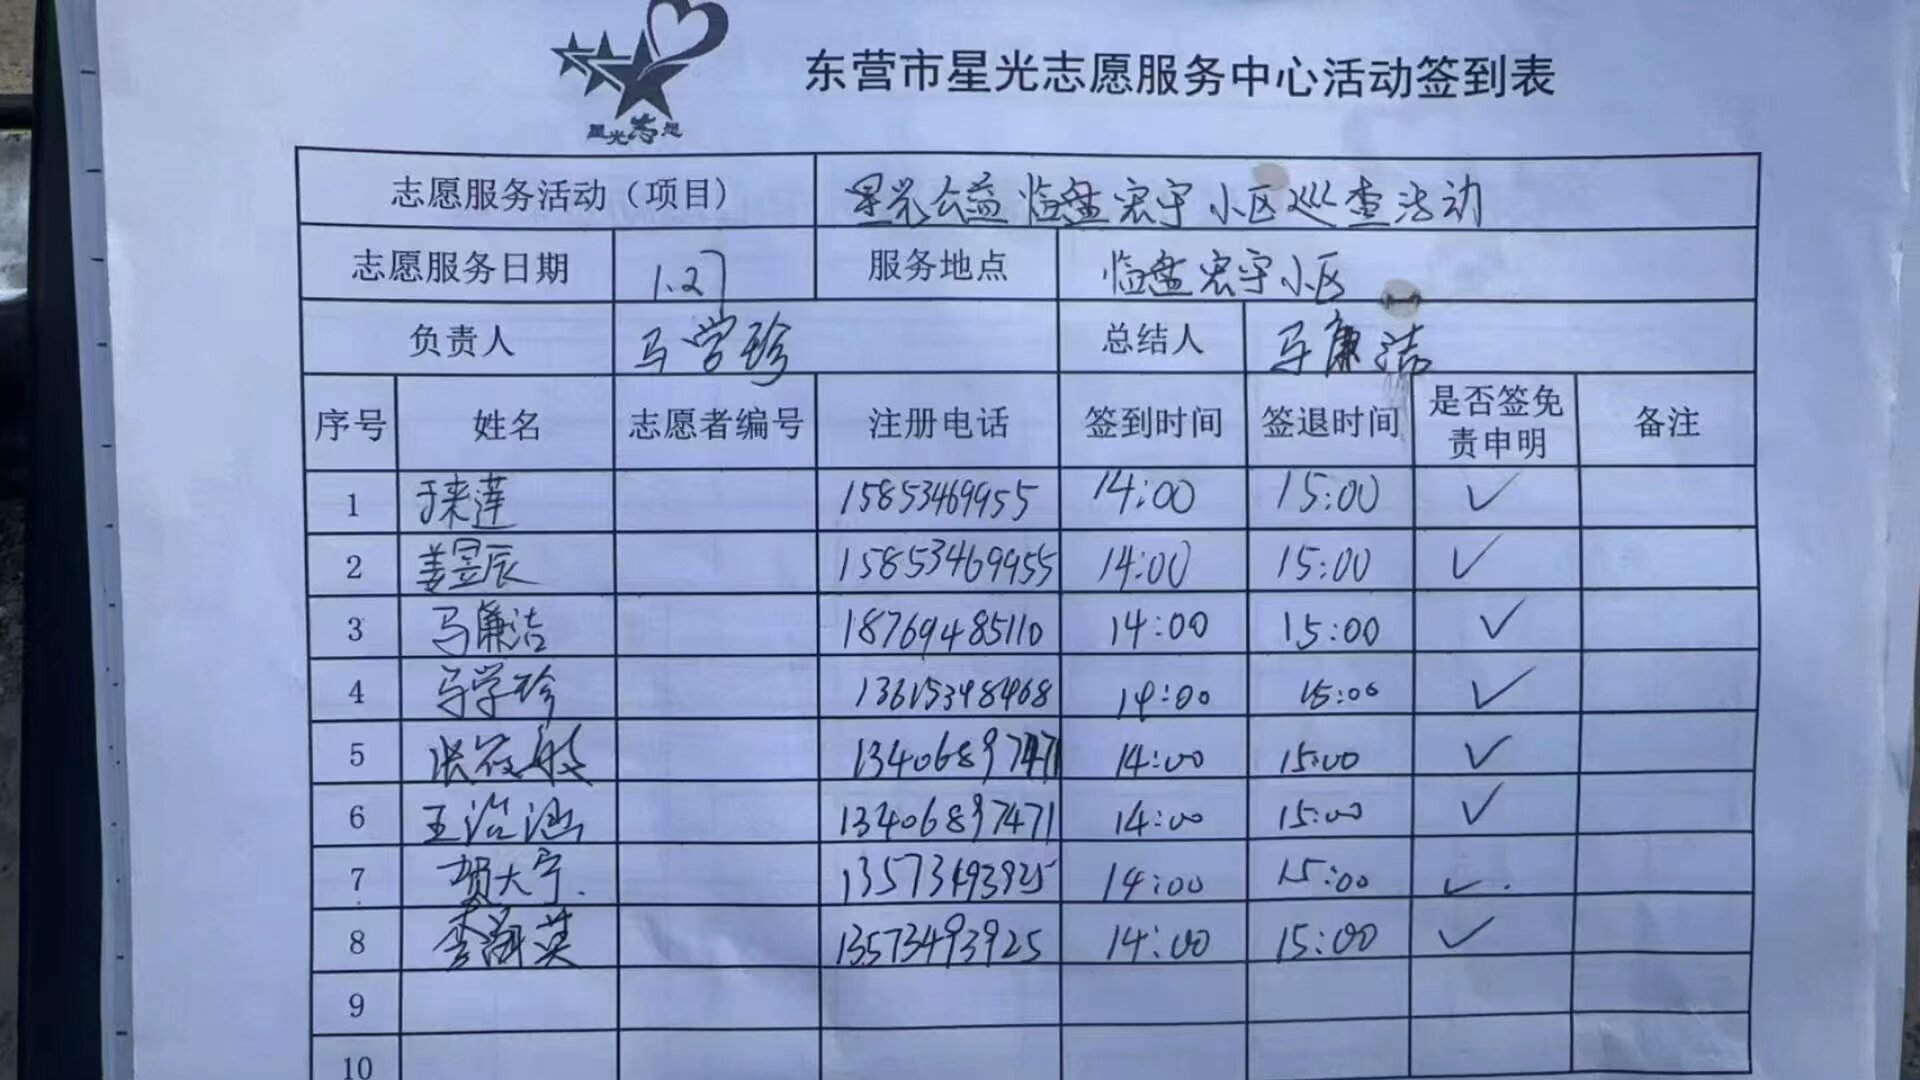 星光志愿
东营市星光志愿服务中心活动签到表
志愿服务活动（项目） 星光公益临盘宏宇小区巡查活动
志愿服务日期 1.27 服务地点 临盘宏宇小区
负责人 马学珍 总结人 马廉洁
序号 姓名 志愿者编号 注册电话 签到时间 签退时间 是否签免责申明 备注
1 于来莲 15853469955 14:00 15:00 ✓
2 姜昱辰 15853469955 14:00 15:00 ✓
3 马廉洁 18769485110 14:00 15:00 ✓
4 马学珍 13615348468 14:00 15:00 ✓
5 13406897471 14:00 15:00 ✓
6 王浛涵 13406897471 14:00 15:00 ✓
7 贺大宁 13573493925 14:00 15:00 ✓
8 13573493925 14:00 15:00 ✓
9
10